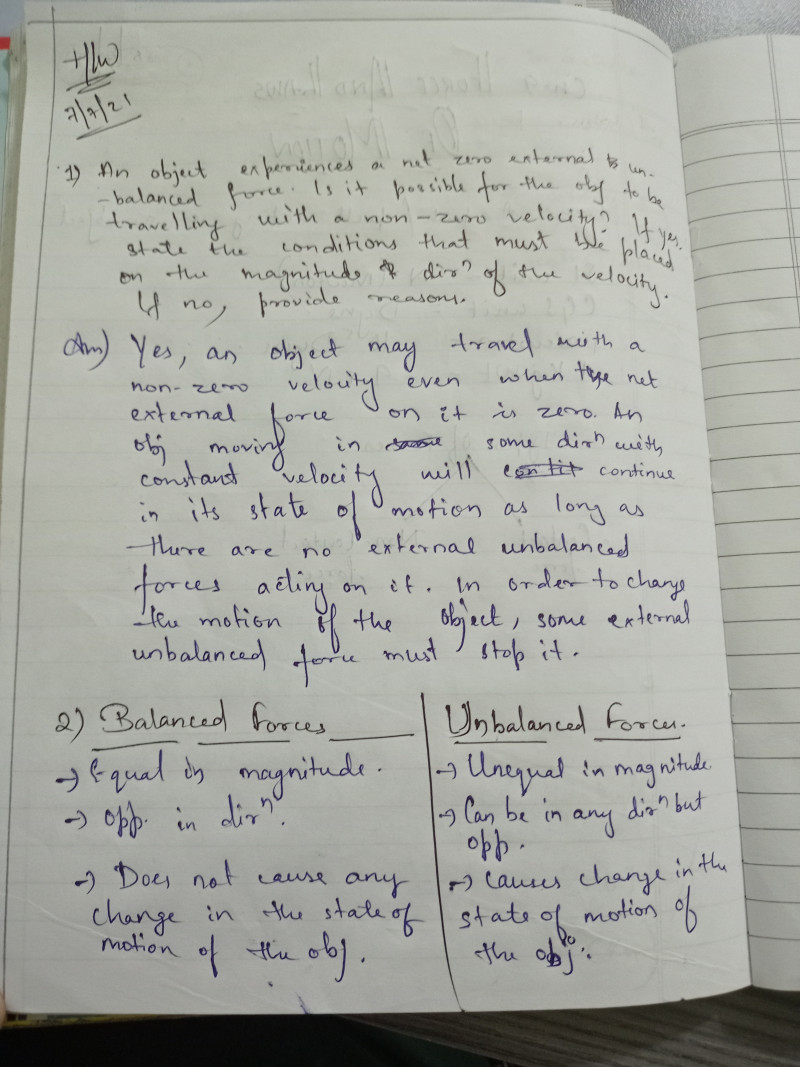 H/W
7/7/21
1) An object experiences a net zero external un-
-balanced force. Is it possible for the obj to be
travelling with a non-zero velocity? If yes,
state the conditions that must be placed
on the magnitude & dirⁿ of the velocity.
If no, provide reason.
Ans) Yes, an object may travel with a
non-zero velocity even when the net
external force on it is zero. An
obj moving in some dirⁿ with
constant velocity will continue
in its state of motion as long as
there are no external unbalanced
forces acting on it. In order to change
the motion of the object, some external
unbalanced force must stop it.
2) Balanced Forces
→ Equal in magnitude.
→ Opp. in dirⁿ.
→ Does not cause any
change in the state of
motion of the obj.
Unbalanced Forces.
→ Unequal in magnitude
→ Can be in any dirⁿ but
opp.
→ Causes change in the
state of motion of
the obj.